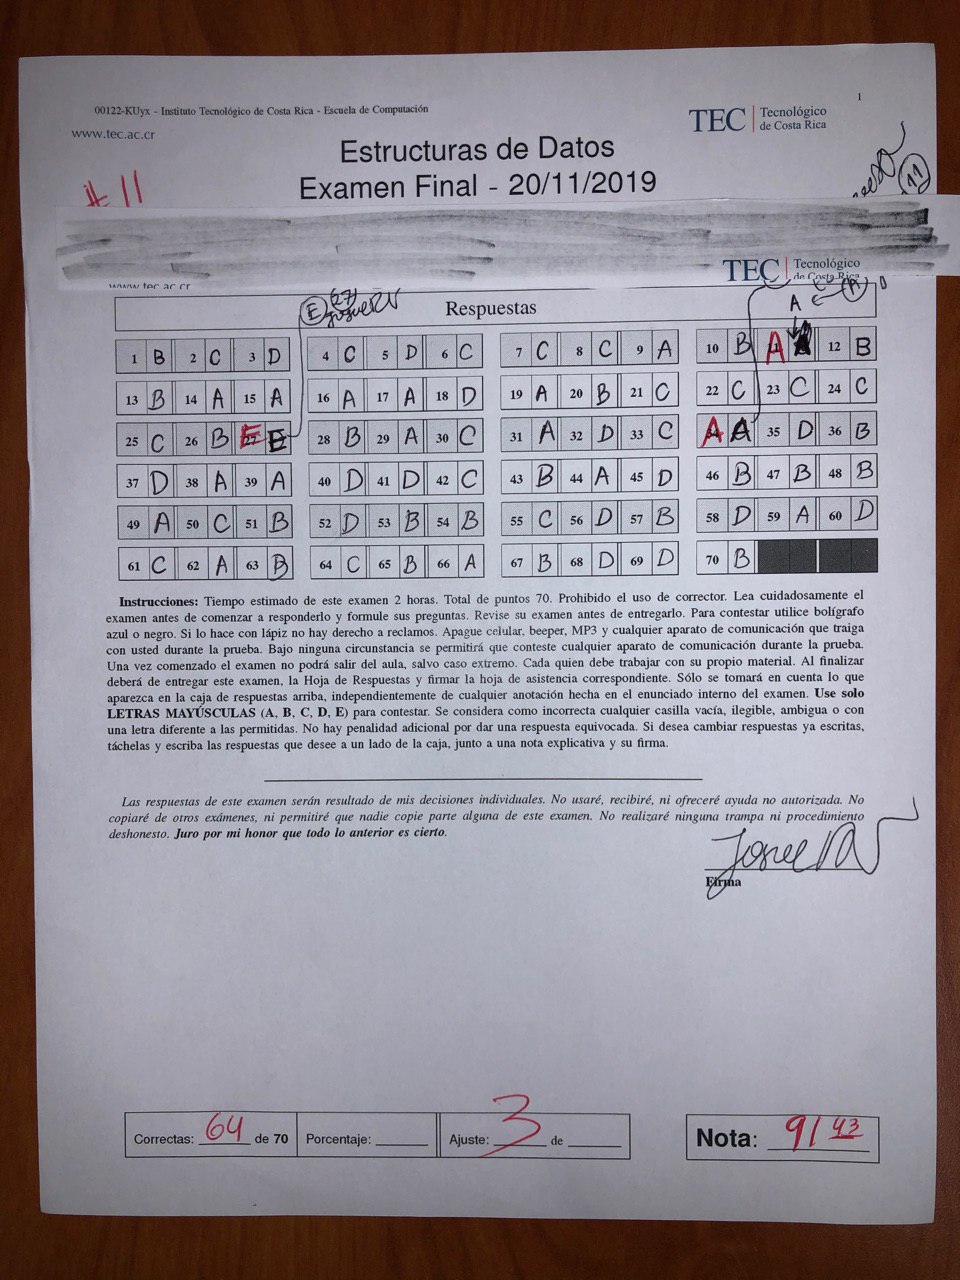 1
00122-KUyx - Instituto Tecnológico de Costa Rica - Escuela de Computación
www.tec.ac.cr
TEC Tecnológico
de Costa Rica
Estructuras de Datos
Examen Final - 20/11/2019
# 11
11
TEC Tecnológico
de Costa Rica
www.tec.ac.cr
E 27
A
Respuestas
1 B 2 C 3 D 4 C 5 D 6 C 7 C 8 C 9 A 10 B 11 A 12 B
13 B 14 A 15 A 16 A 17 A 18 D 19 A 20 B 21 C 22 C 23 C 24 C
25 C 26 B 27 E E 28 B 29 A 30 C 31 A 32 D 33 C 34 A A 35 D 36 B
37 D 38 A 39 A 40 D 41 D 42 C 43 B 44 A 45 D 46 B 47 B 48 B
49 A 50 C 51 B 52 D 53 B 54 B 55 C 56 D 57 B 58 D 59 A 60 D
61 C 62 A 63 B 64 C 65 B 66 A 67 B 68 D 69 D 70 B
Instrucciones: Tiempo estimado de este examen 2 horas. Total de puntos 70. Prohibido el uso de corrector. Lea cuidadosamente el
examen antes de comenzar a responderlo y formule sus preguntas. Revise su examen antes de entregarlo. Para contestar utilice bolígrafo
azul o negro. Si lo hace con lápiz no hay derecho a reclamos. Apague celular, beeper, MP3 y cualquier aparato de comunicación que traiga
con usted durante la prueba. Bajo ninguna circunstancia se permitirá que conteste cualquier aparato de comunicación durante la prueba.
Una vez comenzado el examen no podrá salir del aula, salvo caso extremo. Cada quien debe trabajar con su propio material. Al finalizar
deberá de entregar este examen, la Hoja de Respuestas y firmar la hoja de asistencia correspondiente. Sólo se tomará en cuenta lo que
aparezca en la caja de respuestas arriba, independientemente de cualquier anotación hecha en el enunciado interno del examen. Use solo
LETRAS MAYÚSCULAS (A, B, C, D, E) para contestar. Se considera como incorrecta cualquier casilla vacía, ilegible, ambigua o con
una letra diferente a las permitidas. No hay penalidad adicional por dar una respuesta equivocada. Si desea cambiar respuestas ya escritas,
táchelas y escriba las respuestas que desee a un lado de la caja, junto a una nota explicativa y su firma.
Las respuestas de este examen serán resultado de mis decisiones individuales. No usaré, recibiré, ni ofreceré ayuda no autorizada. No
copiaré de otros exámenes, ni permitiré que nadie copie parte alguna de este examen. No realizaré ninguna trampa ni procedimiento
deshonesto. Juro por mi honor que todo lo anterior es cierto.
Firma
Correctas: 64 de 70 Porcentaje: Ajuste: 3 de Nota: 91 43